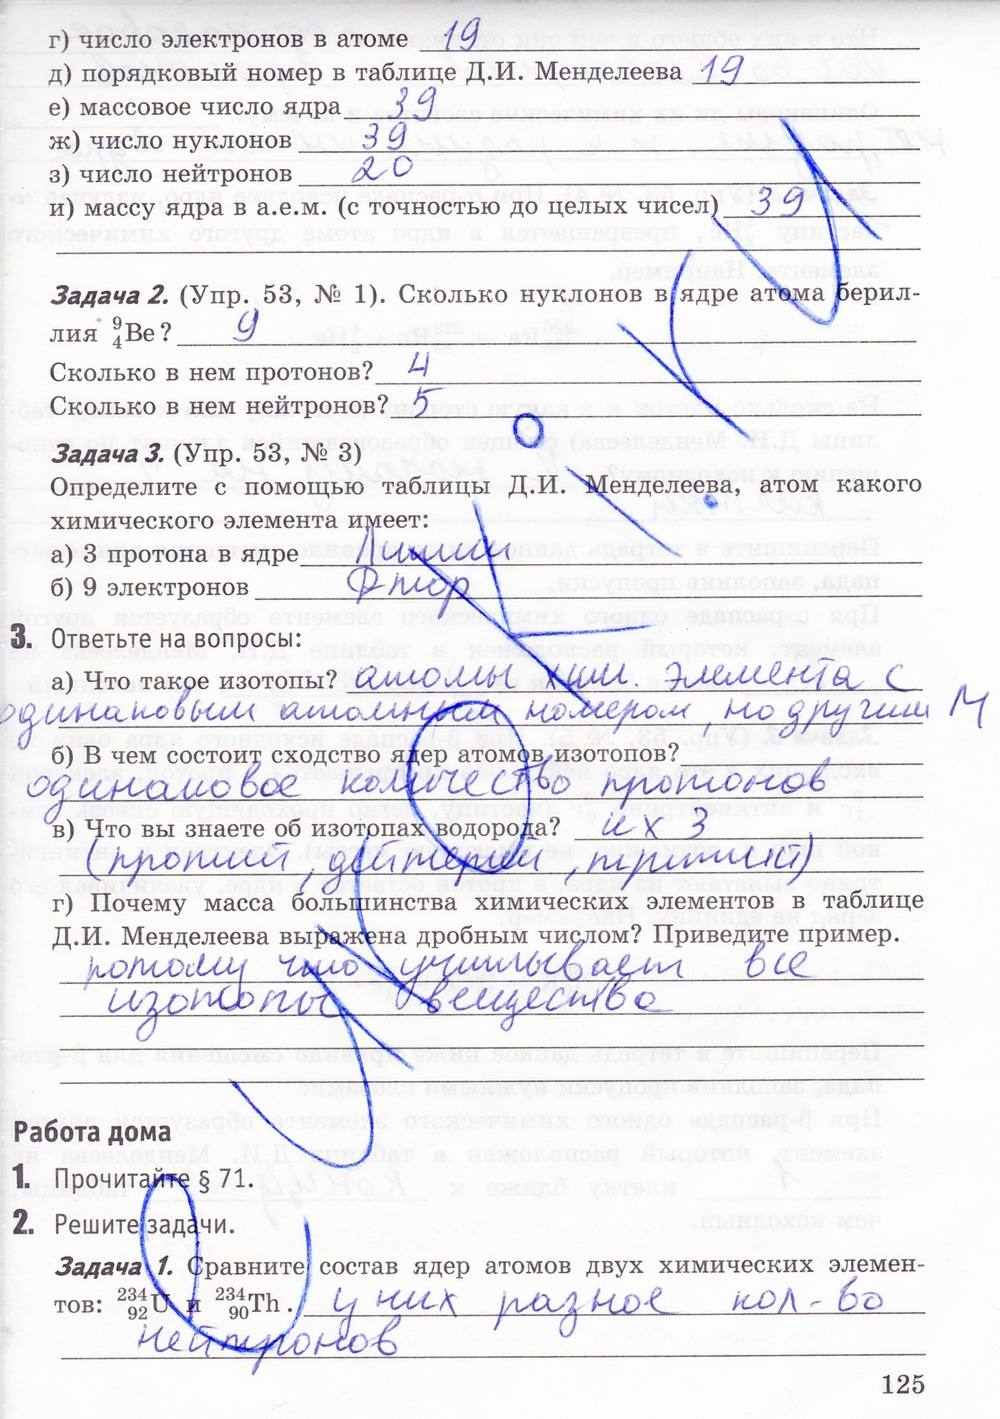 г) число электронов в атоме 19
д) порядковый номер в таблице Д.И. Менделеева 19
е) массовое число ядра 39
ж) число нуклонов 39
з) число нейтронов 20
и) массу ядра в а.е.м. (с точностью до целых чисел) 39
Задача 2. (Упр. 53, № 1). Сколько нуклонов в ядре атома берил-
лия ⁹₄Be? 9
Сколько в нем протонов? 4
Сколько в нем нейтронов? 5
Задача 3. (Упр. 53, № 3)
Определите с помощью таблицы Д.И. Менделеева, атом какого
химического элемента имеет:
а) 3 протона в ядре Литий
б) 9 электронов Фтор
3. Ответьте на вопросы:
а) Что такое изотопы? атомы хим. элемента с
одинаковым атомным номером, но другим M
б) В чем состоит сходство ядер атомов изотопов?
одинаковое количество протонов
в) Что вы знаете об изотопах водорода? их 3
(протий, дейтерий, тритий)
г) Почему масса большинства химических элементов в таблице
Д.И. Менделеева выражена дробным числом? Приведите пример.
потому что учитывает все
изотопы вещества
Работа дома
1. Прочитайте § 71.
2. Решите задачи.
Задача 1. Сравните состав ядер атомов двух химических элемен-
тов: ²³⁴₉₂U и ²³⁴₉₀Th. у них разное кол-во
нейтронов
125